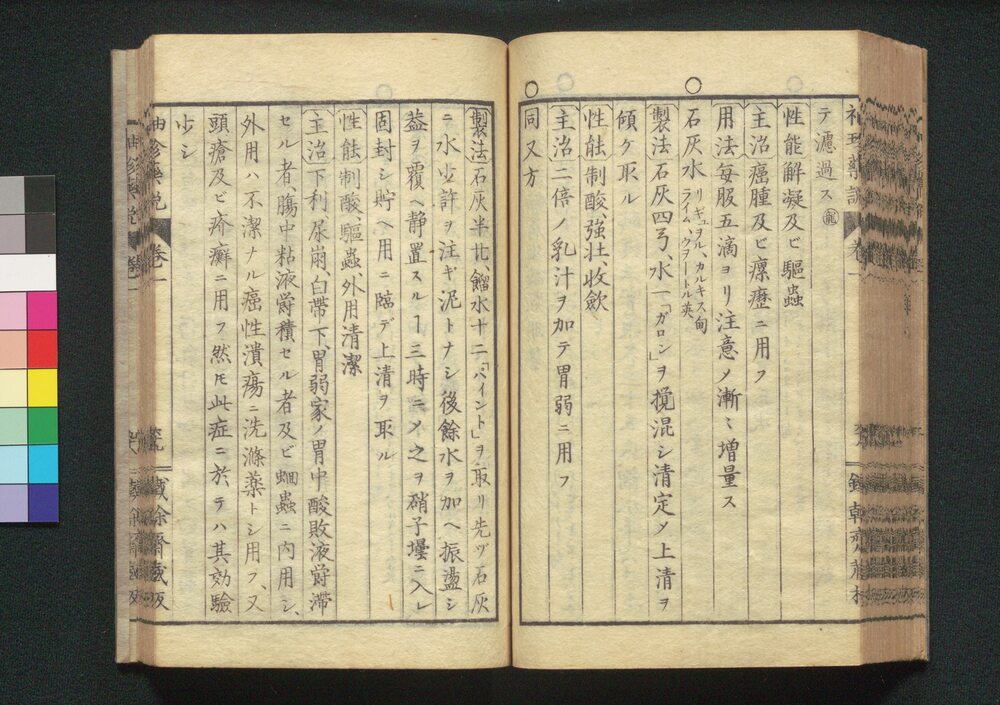 テ濾過ス
性能解凝及ビ驅蟲
主治癌腫及ビ瘰癧ニ用フ
用法毎服五滴ヨリ注意〆漸々増量ス
石灰水 リキュヲル、カルキス甸 ライム、ウヲートル英
製法石灰四弓、水一「ガロン」ヲ攪混シ清定〆上清ヲ
傾ケ取ル
性能制酸、強壮、收歛
主治二倍ノ乳汁ヲ加テ胃弱ニ用フ
同又方
製法石灰半比餾水十二「パイント」ヲ取リ先ヅ石灰
ニ水少許ヲ注ギ泥トナシ後餘水ヲ加ヘ振盪シ
葢ヲ覆ヘ静置スルヿ三時ニ〆之ヲ硝子壜ニ入レ
固封シ貯ヘ用ニ臨デ上清ヲ取ル
性能制酸、驅蟲、外用清潔
主治下利、尿崩、白帯下、胃弱家ノ胃中酸敗液欝滞
セル者、膓中粘液欝積セル者及ビ蛔蟲ニ内用シ、
外用ハ不潔ナル癌性潰瘍ニ洗滌薬トシ用フ、又
頭瘡及ビ疥癬ニ用フ然𪜈此症ニ於テハ其効驗
少シ
袖珍藥説 卷一
藏版